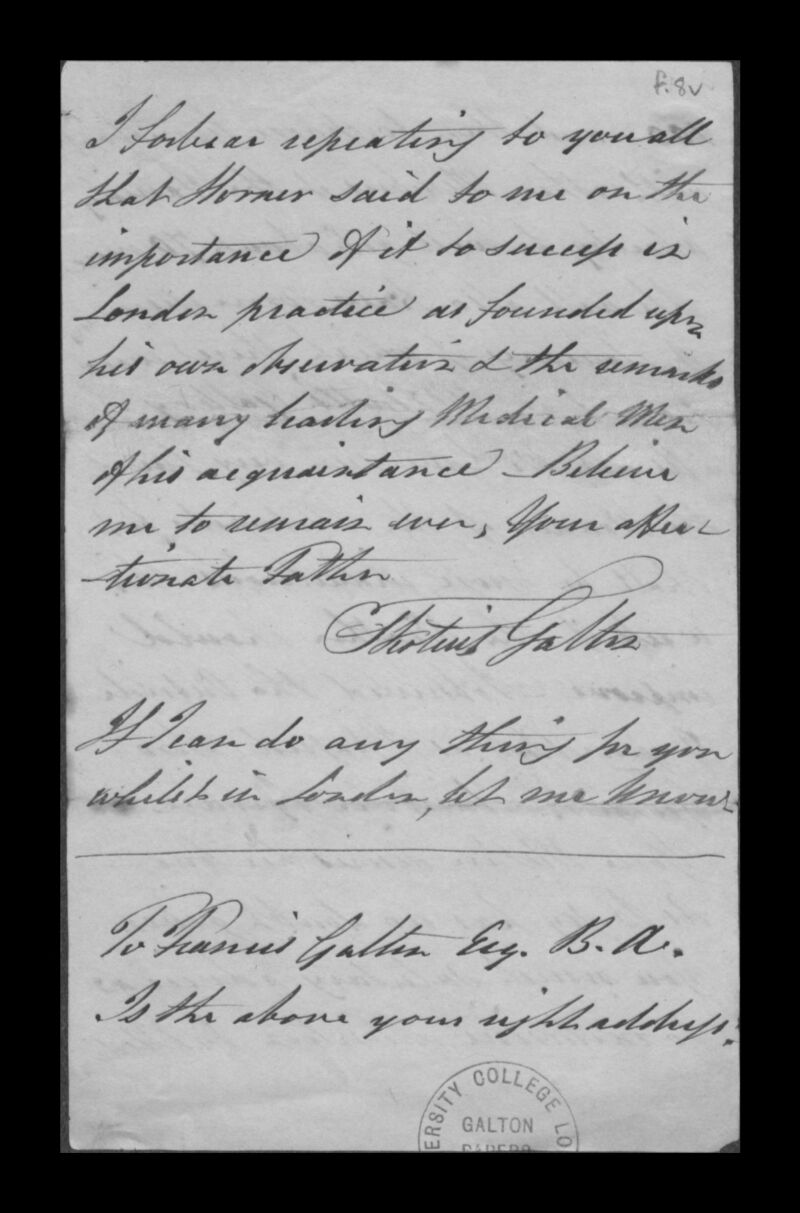 f.8v
I forbear repeating to you all
that Horner said to me on the
importance of it to success in
London practice as founded upon
his own observation & the remarks
of many leading Medical Men
of his acquaintance – Believe
me to remain ever, Your affec-
-tionate Father
Galton
If I can do any thing for you
whilst in London, let me know
To Francis Galton Esq. B. A.
Is the above your right address?
ERSITY COLLEGE LO
GALTON
PAPERS